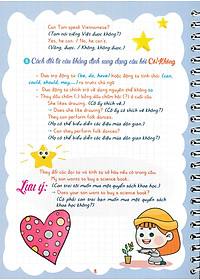 Can Tom speak Vietnamese?
(Tom nói tiếng Việt được không?)
Yes, he can. / No, he can't.
(Vâng, được. / Không, không được.)
Cách đổi từ câu khẳng định sang dạng câu hỏi Có-Không
- Đưa trợ động từ (be, do, have) hoặc động từ tình thái (can,
could, should, may,...) ra trước chủ ngữ.
- Đưa động từ chính trở về dạng nguyên thể không to
- Thay dấu chấm (.) bằng dấu chấm hỏi (?) ở cuối câu
She likes drawing. (Cô ấy thích vẽ.)
→ Does she like drawing? (Cô ấy có thích vẽ không?)
They can perform folk dances.
(Họ có thể biểu diễn các điệu múa dân gian.)
→ Can they perform folk dances?
(Họ có thể biểu diễn các điệu múa dân gian không?)
Lưu ý:
Thay đổi các đại từ và tính từ sở hữu nếu có trong câu.
My son wants to buy a science book.
(Con trai tôi muốn mua một quyển sách khoa học.)
→ Does your son want to buy a science book?
(Có phải con trai bạn muốn mua một quyển sách
khoa học không?)